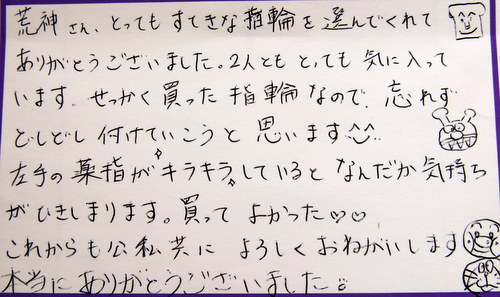 荒神さん、とってもすてきな指輪を選んでくれて
ありがとうございました。2人ともとっても気に入って
います。せっかく買った指輪なので、忘れず
どしどし付けていこうと思います
左手の薬指がキラキラしているとなんだか気持ち
がひきしまります。買ってよかった♡♡
これからも公私共によろしくおねがいします
本当にありがとうございました